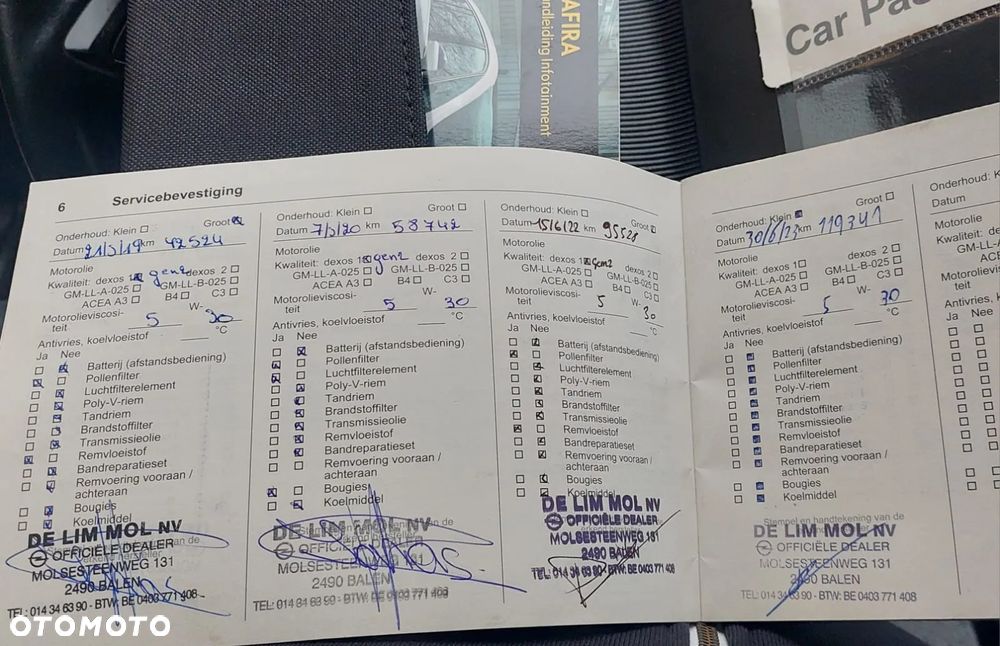 AFIRA
ndleiding Infotainment
Car Pa
6 Servicebevestiging
Onderhoud: Klein ☐ Groot ☒
Datum 21/3/19 km 42524
Motorolie
Kwaliteit: dexos 1 ☒ gen2 dexos 2 ☐
GM-LL-A-025 ☐ GM-LL-B-025 ☐
ACEA A3 ☐ B4 ☐ C3 ☐
Motorolieviscosi-
teit 5 W- 30
Antivries, koelvloeistof °C
Ja Nee
Batterij (afstandsbediening)
Pollenfilter
Luchtfilterelement
Poly-V-riem
Tandriem
Brandstoffilter
Transmissieolie
Remvloeistof
Bandreparatieset
Remvoering vooraan /
achteraan
Bougies
Koelmiddel
DE LIM MOL NV
OFFICIËLE DEALER
MOLSESTEENWEG 131
2490 BALEN
TEL: 014 34 63 90 - BTW: BE 0403 771 408
Onderhoud: Klein ☐ Groot ☐
Datum 7/5/20 km 58742
Motorolie
Kwaliteit: dexos 1 ☒ gen2 dexos 2 ☐
GM-LL-A-025 ☐ GM-LL-B-025 ☐
ACEA A3 ☐ B4 ☐ C3 ☐
Motorolieviscosi-
teit 5 W- 30
Antivries, koelvloeistof °C
Ja Nee
Batterij (afstandsbediening)
Pollenfilter
Luchtfilterelement
Poly-V-riem
Tandriem
Brandstoffilter
Transmissieolie
Remvloeistof
Bandreparatieset
Remvoering vooraan /
achteraan
Bougies
Koelmiddel
DE LIM MOL NV
OFFICIËLE
MOLSESTEENWEG
2490 BALEN
TEL: 014 34 63 90 - BTW: BE 0403 771 408
Onderhoud: Klein ☐ Groot ☒
Datum 15/6/22 km 95528
Motorolie
Kwaliteit: dexos 1 ☒ gen2 dexos 2 ☐
GM-LL-A-025 ☐ GM-LL-B-025 ☐
ACEA A3 ☐ B4 ☐ C3 ☐
Motorolieviscosi-
teit 5 W- 30
Antivries, koelvloeistof °C
Ja Nee
Batterij (afstandsbediening)
Pollenfilter
Luchtfilterelement
Poly-V-riem
Tandriem
Brandstoffilter
Transmissieolie
Remvloeistof
Bandreparatieset
Remvoering vooraan /
achteraan
Bougies
Koelmiddel
DE LIM MOL NV
OFFICIËLE DEALER
MOLSESTEENWEG 131
2490 BALEN
TEL: 014 34 63 90 - BTW: BE 0403 771 408
Onderhoud: Klein ☒ Groot ☐
Datum 30/6/23 km 119341
Motorolie
Kwaliteit: dexos 1 ☐ dexos 2 ☐
GM-LL-A-025 ☐ GM-LL-B-025 ☐
ACEA A3 ☐ B4 ☐ C3 ☐
Motorolieviscosi-
teit 5 W- 30
Antivries, koelvloeistof °C
Ja Nee
Batterij (afstandsbediening)
Pollenfilter
Luchtfilterelement
Poly-V-riem
Tandriem
Brandstoffilter
Transmissieolie
Remvloeistof
Bandreparatieset
Remvoering vooraan /
achteraan
Bougies
Koelmiddel
Stempel en handtekening van de
DE LIM MOL NV
OFFICIËLE DEALER
MOLSESTEENWEG 131
2490 BALEN
TEL: 014 34 63 90 - BTW: BE 0403 771 408
Onderhoud: K
Datum
Motorolie
Kwaliteit: de
GM-LL
ACE
Motorolie
teit
Antivries, k
Ja Nee
OTOMOTO